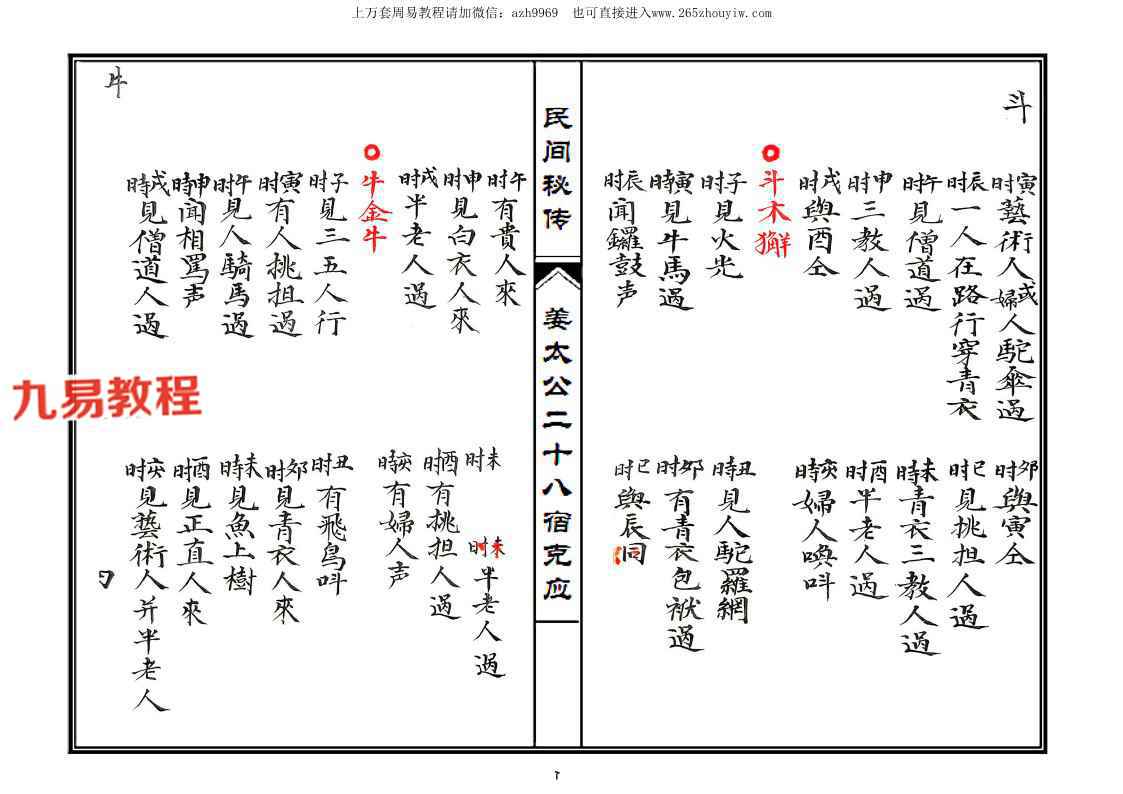 上万套周易教程请加微信：azh9969 也可直接进入www.265zhouyiw.com
斗
寅時藝術人或婦人駝傘過
卯时與寅仝
辰时一人在路行穿青衣
巳时見挑担人過
午時見僧道過
未時青衣三教人過
申时三教人過
酉时半老人過
戌时與酉仝
亥時婦人喚呌
斗木獬
子时見火光
丑時見人駝羅網
寅時見牛馬過
卯时有青衣包袱過
辰时聞鑼鼓声
巳时與辰同
民间秘传
姜太公二十八宿克应
午时有貴人來
未时
未时半老人過
申时見白衣人來
酉时有挑担人過
戌时半老人過
亥時有婦人声
牛金牛
子时見三五人行
丑时有飛鳥呌
寅时有人挑担過
卯时見青衣人來
午时見人騎馬過
未時見魚上樹
申時聞相罵声
酉时見正直人來
戌時見僧道人過
亥时見藝術人并半老人
牛
九易教程